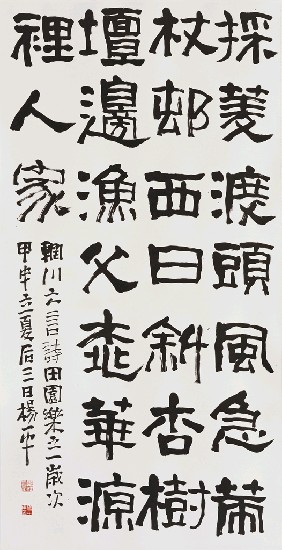 採菱渡頭風急策
杖邨西日斜杏樹
壇邊漁父桃華源
裡人家
輞川六言詩田園樂之一歲次
甲午立夏后三日楊